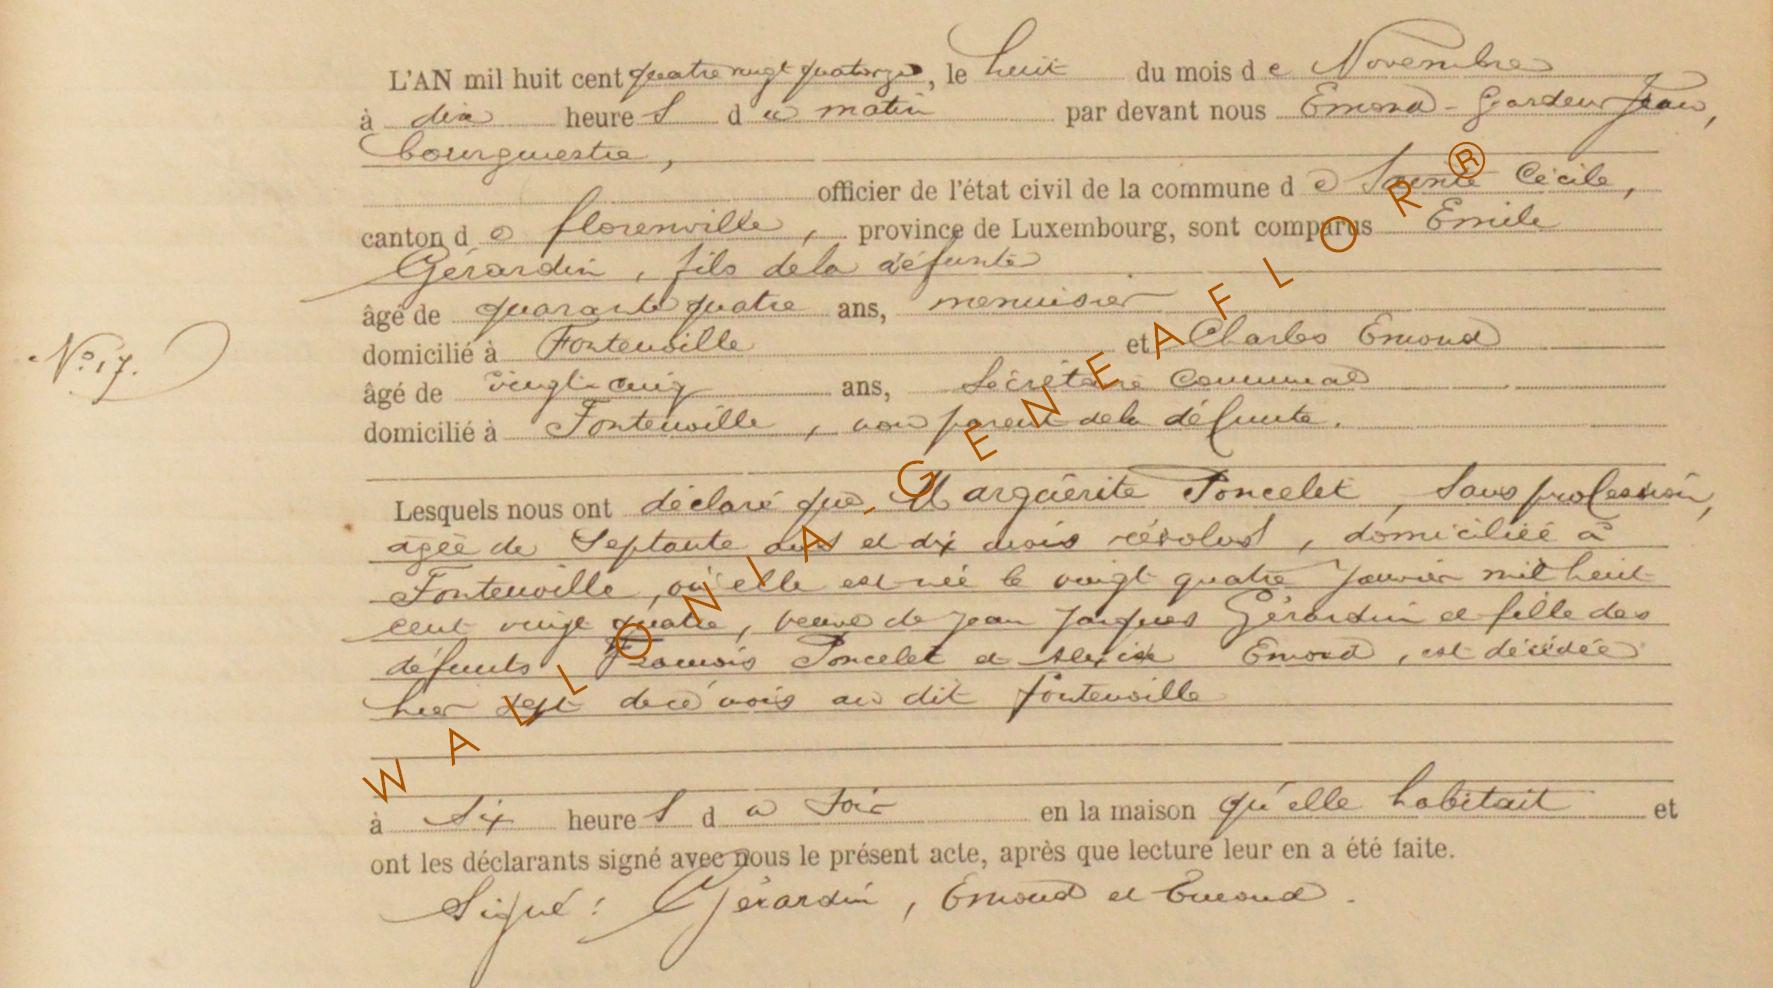 L'AN mil huit cent quatre vingt quatorze, le huit du mois de Novembre
à dix heures du matin par devant nous Emond-Gardeur Jean,
bourgmestre,
officier de l'état civil de la commune de Sainte Cécile,
canton de florenville, province de Luxembourg, sont comparus Emile
Gérardin, fils de la défunte
âgé de quarante quatre ans, menuisier
domicilié à Fontenoille et Charles Emond
N° 17.
âgé de vingt-cinq ans, Secrétaire Communal
domicilié à Fontenoille, non parent de la défunte.
Lesquels nous ont déclaré que Marguérite Poncelet, sans profession,
agée de Septante ans et dix mois révolus, domiciliée à
Fontenoille, où elle est née le vingt quatre Janvier mil huit
cent vingt quatre, veuve de Jean Jacques Gérardin et fille des
défunts François Poncelet et Emond, est décédée
hier sept de ce mois au dit fontenoille
à Six heures du Soir en la maison qu'elle habitait et
ont les déclarants signé avec nous le présent acte, après que lecture leur en a été faite.
Signé: Gérardin, Emond et Emond.
WALLONIA-GENEAFLOR®